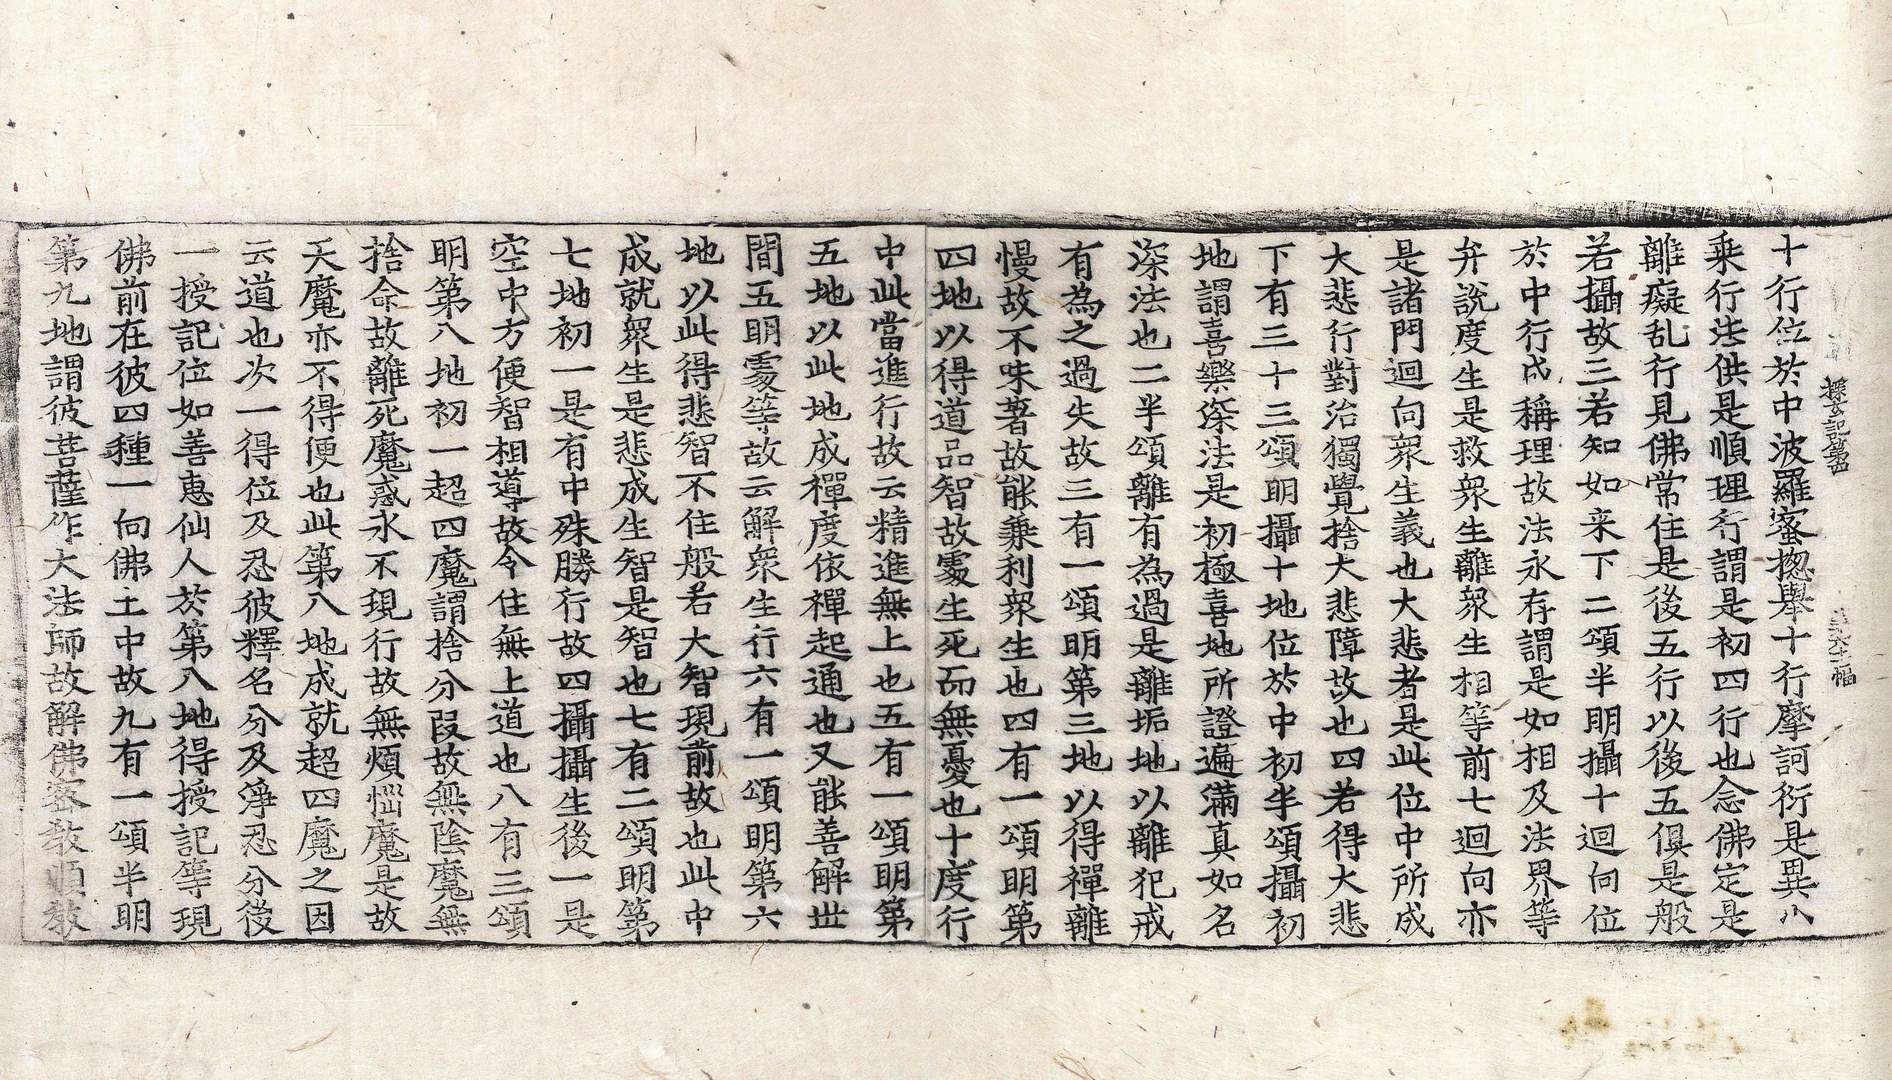 探玄記第四
十行位於中波羅蜜揔舉十行摩訶衍是異八
乘行法供是順理行謂是初四行也念佛定是
離癡乱行見佛常住是後五行以後五俱是般
若攝故三若知如来下二頌半明攝十迴向位
於中行成稱理故法永存謂是如相及法界等
弁說度生是救衆生離衆生相等前七迴向亦
是諸門迴向衆生義也大悲者是此位中所成
大悲行對治獨覺捨大悲障故也四若得大悲
下有三十三頌明攝十地位於中初半頌攝初
地謂喜樂深法是初極喜地所證遍滿真如名
深法也二半頌離有為過是離垢地以離犯戒
有為之過失故三有一頌明第三地以得禪離
慢故不味著故能兼利衆生也四有一頌明第
四地以得道品智故處生死而無憂也十度行
中此當進行故云精進無上也五有一頌明第
五地以此地成禪度依禪起通也又能善解世
間五明處等故云解衆生行六有一頌明第六
地以此得悲智不住般若大智現前故也此中
成就衆生是悲成生智是智也七有二頌明第
七地初一是有中殊勝行故四攝攝生後一是
空中方便智相導故令住無上道也八有三頌
明第八地初一超四魔謂捨分段故無陰魔無
捨命故離死魔惑永不現行故無煩惱魔是故
天魔亦不得便也此第八地成就超四魔之因
云道也次一得位及忍彼釋名分及淨忍分後
一授記位如善惠仙人於第八地得授記等現
佛前在彼四種一向佛土中故九有一頌半明
第九地謂彼菩薩作大法師故解佛密教順教